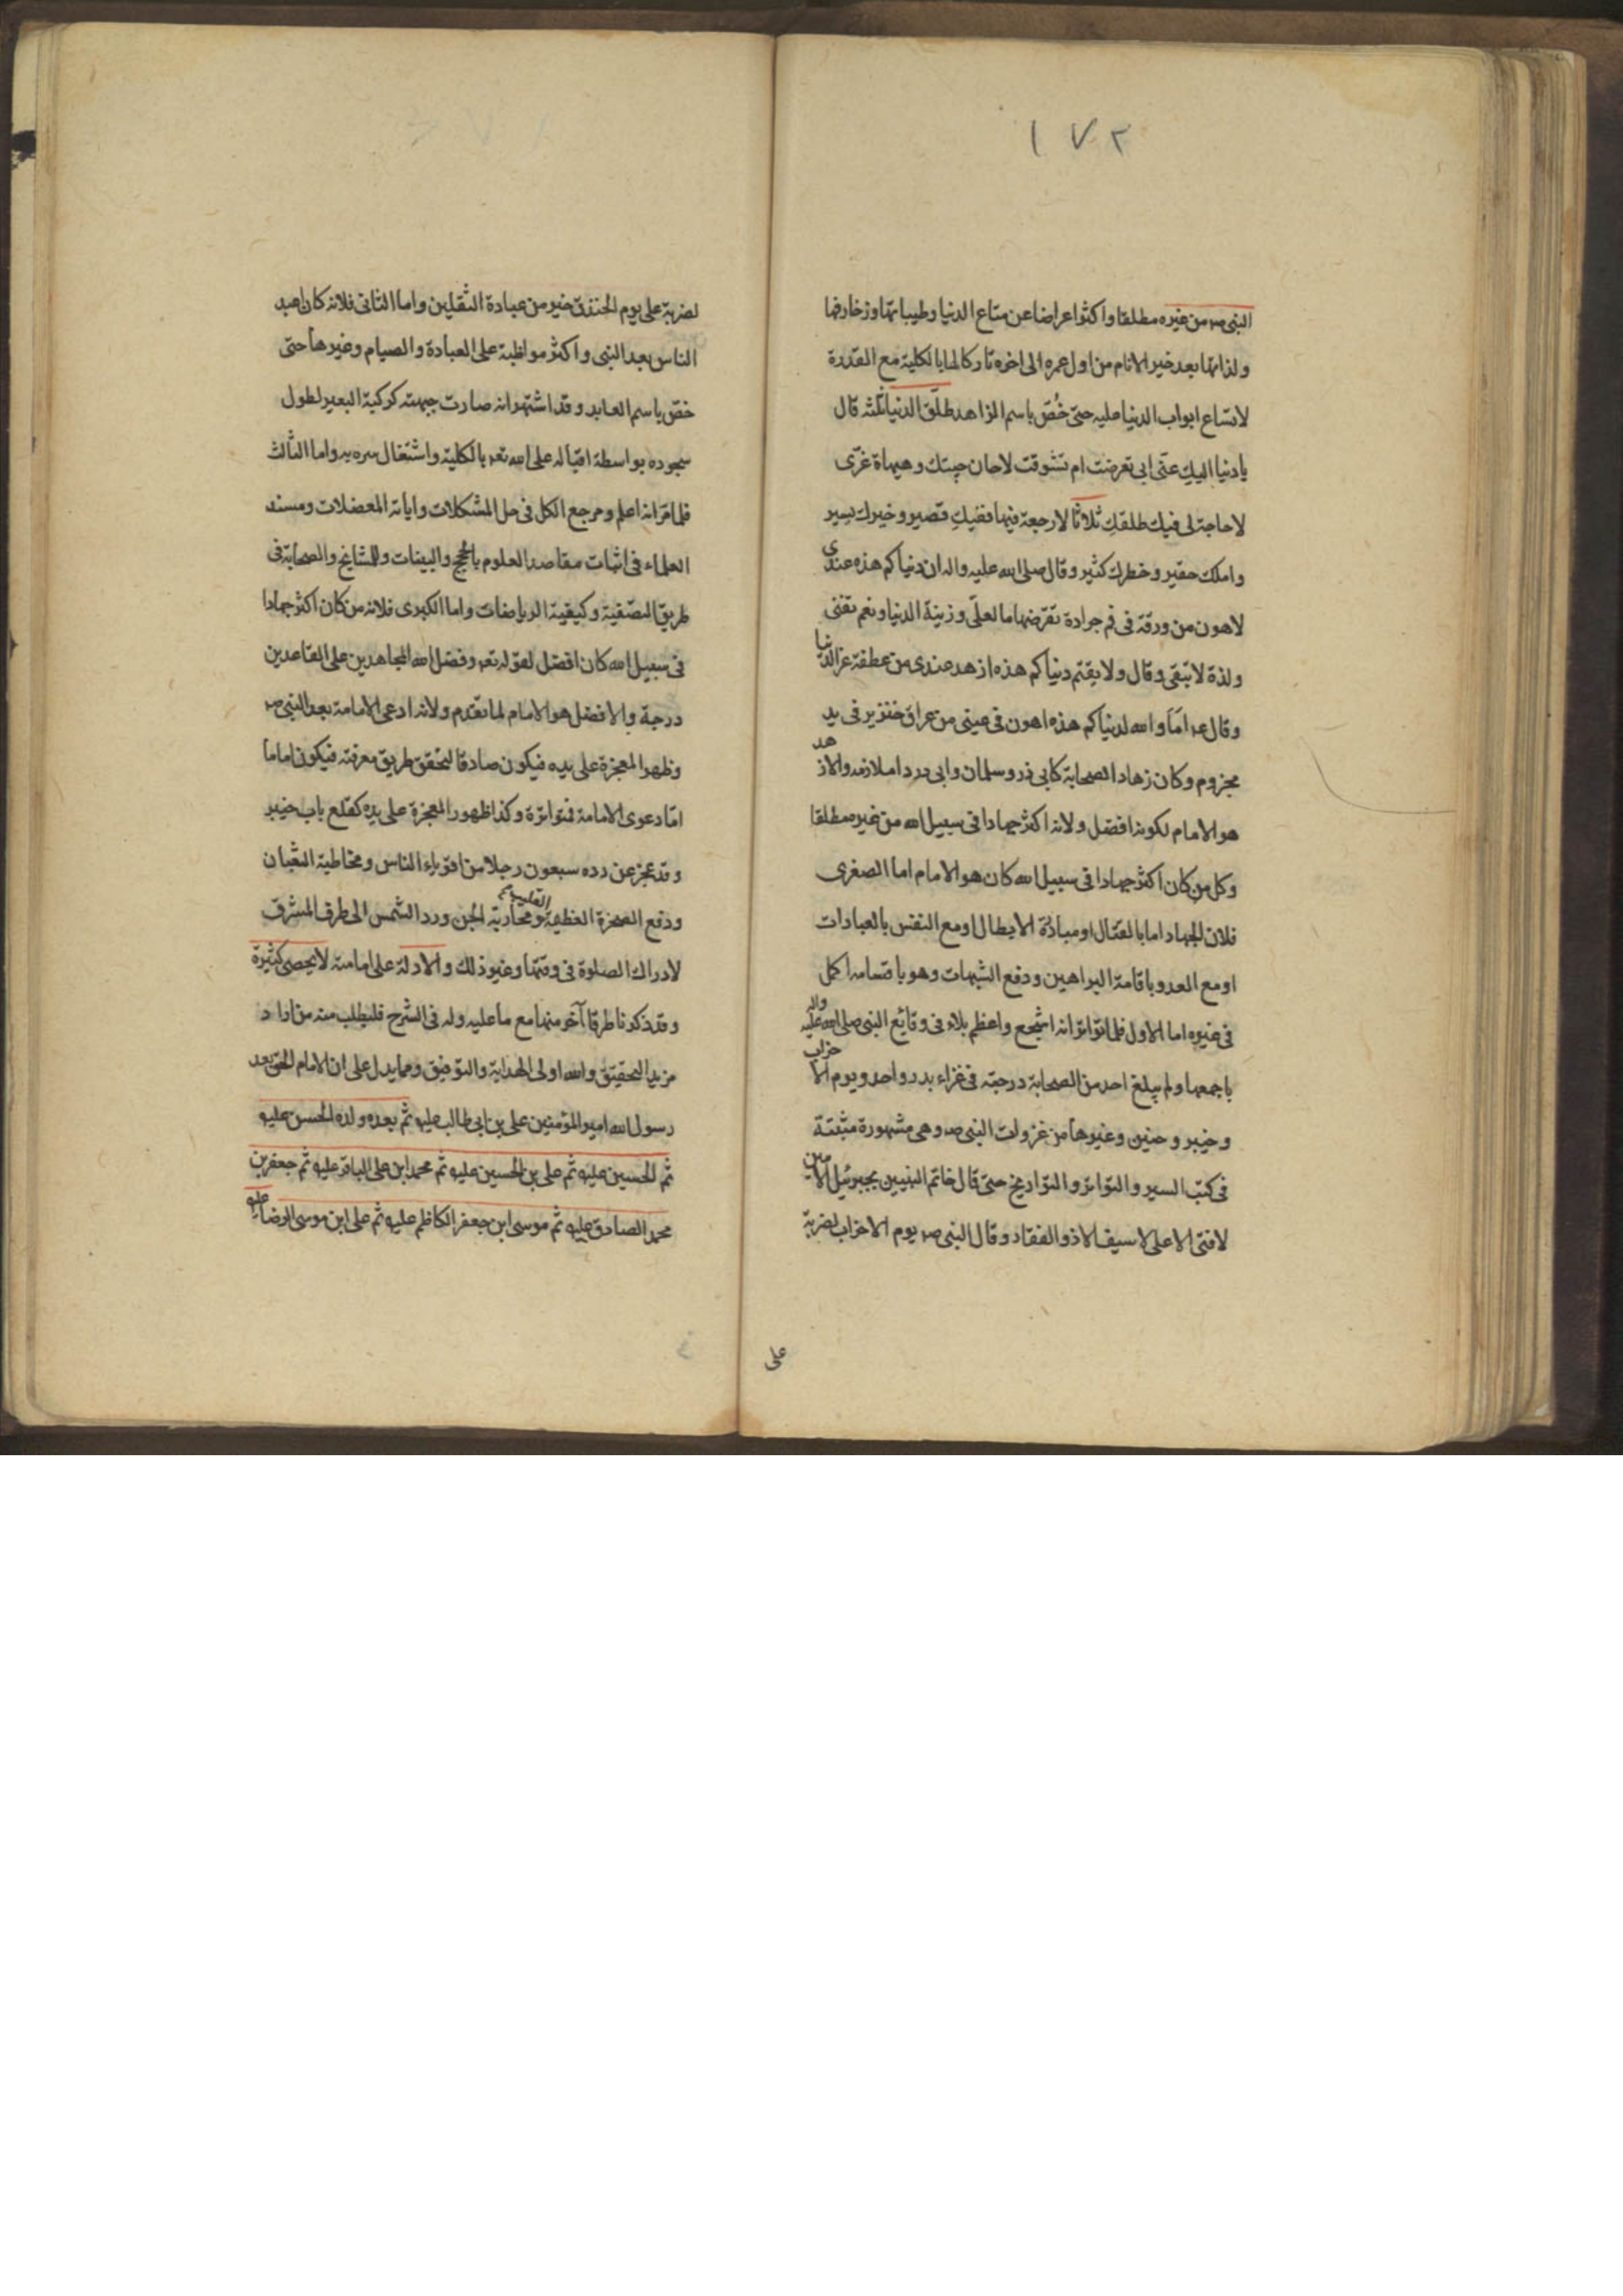 ١٧٢
النبى صه من غيره مطلقا واكثر اعراضا عن متاع الدنيا وطيباتها وزخارفها
ولذاتها بعد خير الانام من اول عمره الى اخره تاركا لها بالكلية مع القدرة
لاتساع ابواب الدنيا عليه حتى خُصّ باسم الزاهد طلّق الدنيا ثلثه قال
يا دنيا اليكِ عنّى ابى تعرضت ام تشوقت لا حان حينك وهيهاة غرّى
لا حاجة لى فيك طلقتكِ ثلاثا لا رجعة فيها فعيشكِ قصير وخيرك يسير
واملك حقير وخطرك كثير وقال صلى الله عليه واله ان دنياكم هذه عندى
لاهون من ورقة فى فم جرادة تقرضها ما لعلّى وزينة الدنيا ونعم تفنى
ولذة لا تبقى وقال ولا يقتم دنياكم هذه ازهد عندى من عطفة عز الدنيا
وقال عه امّا والله لدنياكم هذه اهون فى عينى من عراق خنزير فى يد
مجزوم وكان زهاد الصحابة كابى ذر وسلمان وابى دردا ملازمه والازهد
هو الامام لكونه افضل ولانه اكثر جهادا فى سبيل الله من غيره مطلقا
وكل من كان اكثر جهادا فى سبيل الله كان هو الامام اما الصغرى
فلان الجهاد اما بالقتال ومبارزة الابطال او مع النفس بالعبادات
او مع العدو باقامة البراهين ودفع الشبهات وهو باقسامه اكمل
فى غيره اما الاول فلما تواتر انه اشجع واعظم بلاء فى وقايع النبى صلى الله عليه واله
باجمعها ولم يبلغ احد من الصحابة درجته فى غزاء بدر واحد ويوم الاحزاب
وخيبر وحنين وغيرها من غزوات النبى صه وهى مشهورة مثبتة
فى كتب السير والتواتر والتواريخ حتى قال خاتم النبيين بجبرئيل الامين
لا فتى الا على لا سيف الا ذو الفقار وقال النبى صه يوم الاحزاب لضربة
على
لضربة على يوم الخندق خير من عبادة الثقلين واما الثانى فلانه كان اعبد
الناس بعد النبى واكثر مواظبة على العبادة والصيام وغيرها حتى
خصّ باسم العابد وقد اشتهر انه صارت جبهته كركبة البعير لطول
سجوده بواسطة اقباله على الله تعه بالكلية واشتغال سره به واما الثالث
فلما مرّ انه اعلم ومرجع الكل فى حل المشكلات وابانة المعضلات ومسند
العلماء فى اثبات مقاصد العلوم بالحجج والبينات وللمشايخ والصحابة فى
طريق التصفية وكيفية الرياضات واما الكبرى فلانه من كان اكثر جهادا
فى سبيل الله كان افضل لقوله تعه وفضل الله المجاهدين على القاعدين
درجة والافضل هو الامام لما تقدم ولانه ادعى الامامة بعد النبى صه
وظهر المعجزة على يديه فيكون صادقا لتحقق طريق معرفته فيكون اماما
امّا دعوى الامامة فتواترة وكذا ظهور المعجزة على يده كقلع باب خيبر
وقد عجز عن رده سبعون رجلا من اقوياء الناس ومخاطبة الثعبان
ودفع الصخرة العظيمة ومحاربة الجن ورد الشمس الى طرف المشرق
لادراك الصلوة فى وقتها وغير ذلك والادلة على امامته لا يحصى كثيرة
وقد ذكرنا طرقا آخر منها مع ما عليه وله فى الشرح فليطلب منه من اراد
مزيد التحقيق والله اولى الهداية والتوفيق ومما يدل على ان الامام الحق بعد
رسول الله امير المؤمنين على بن ابى طالب عليه ثم بعده ولده الحسن عليه
ثم الحسين عليه ثم على بن الحسين عليه ثم محمد ابن على الباقر عليه ثم جعفر بن
محمد الصادق عليه ثم موسى ابن جعفر الكاظم عليه ثم على ابن موسى الرضا عليه